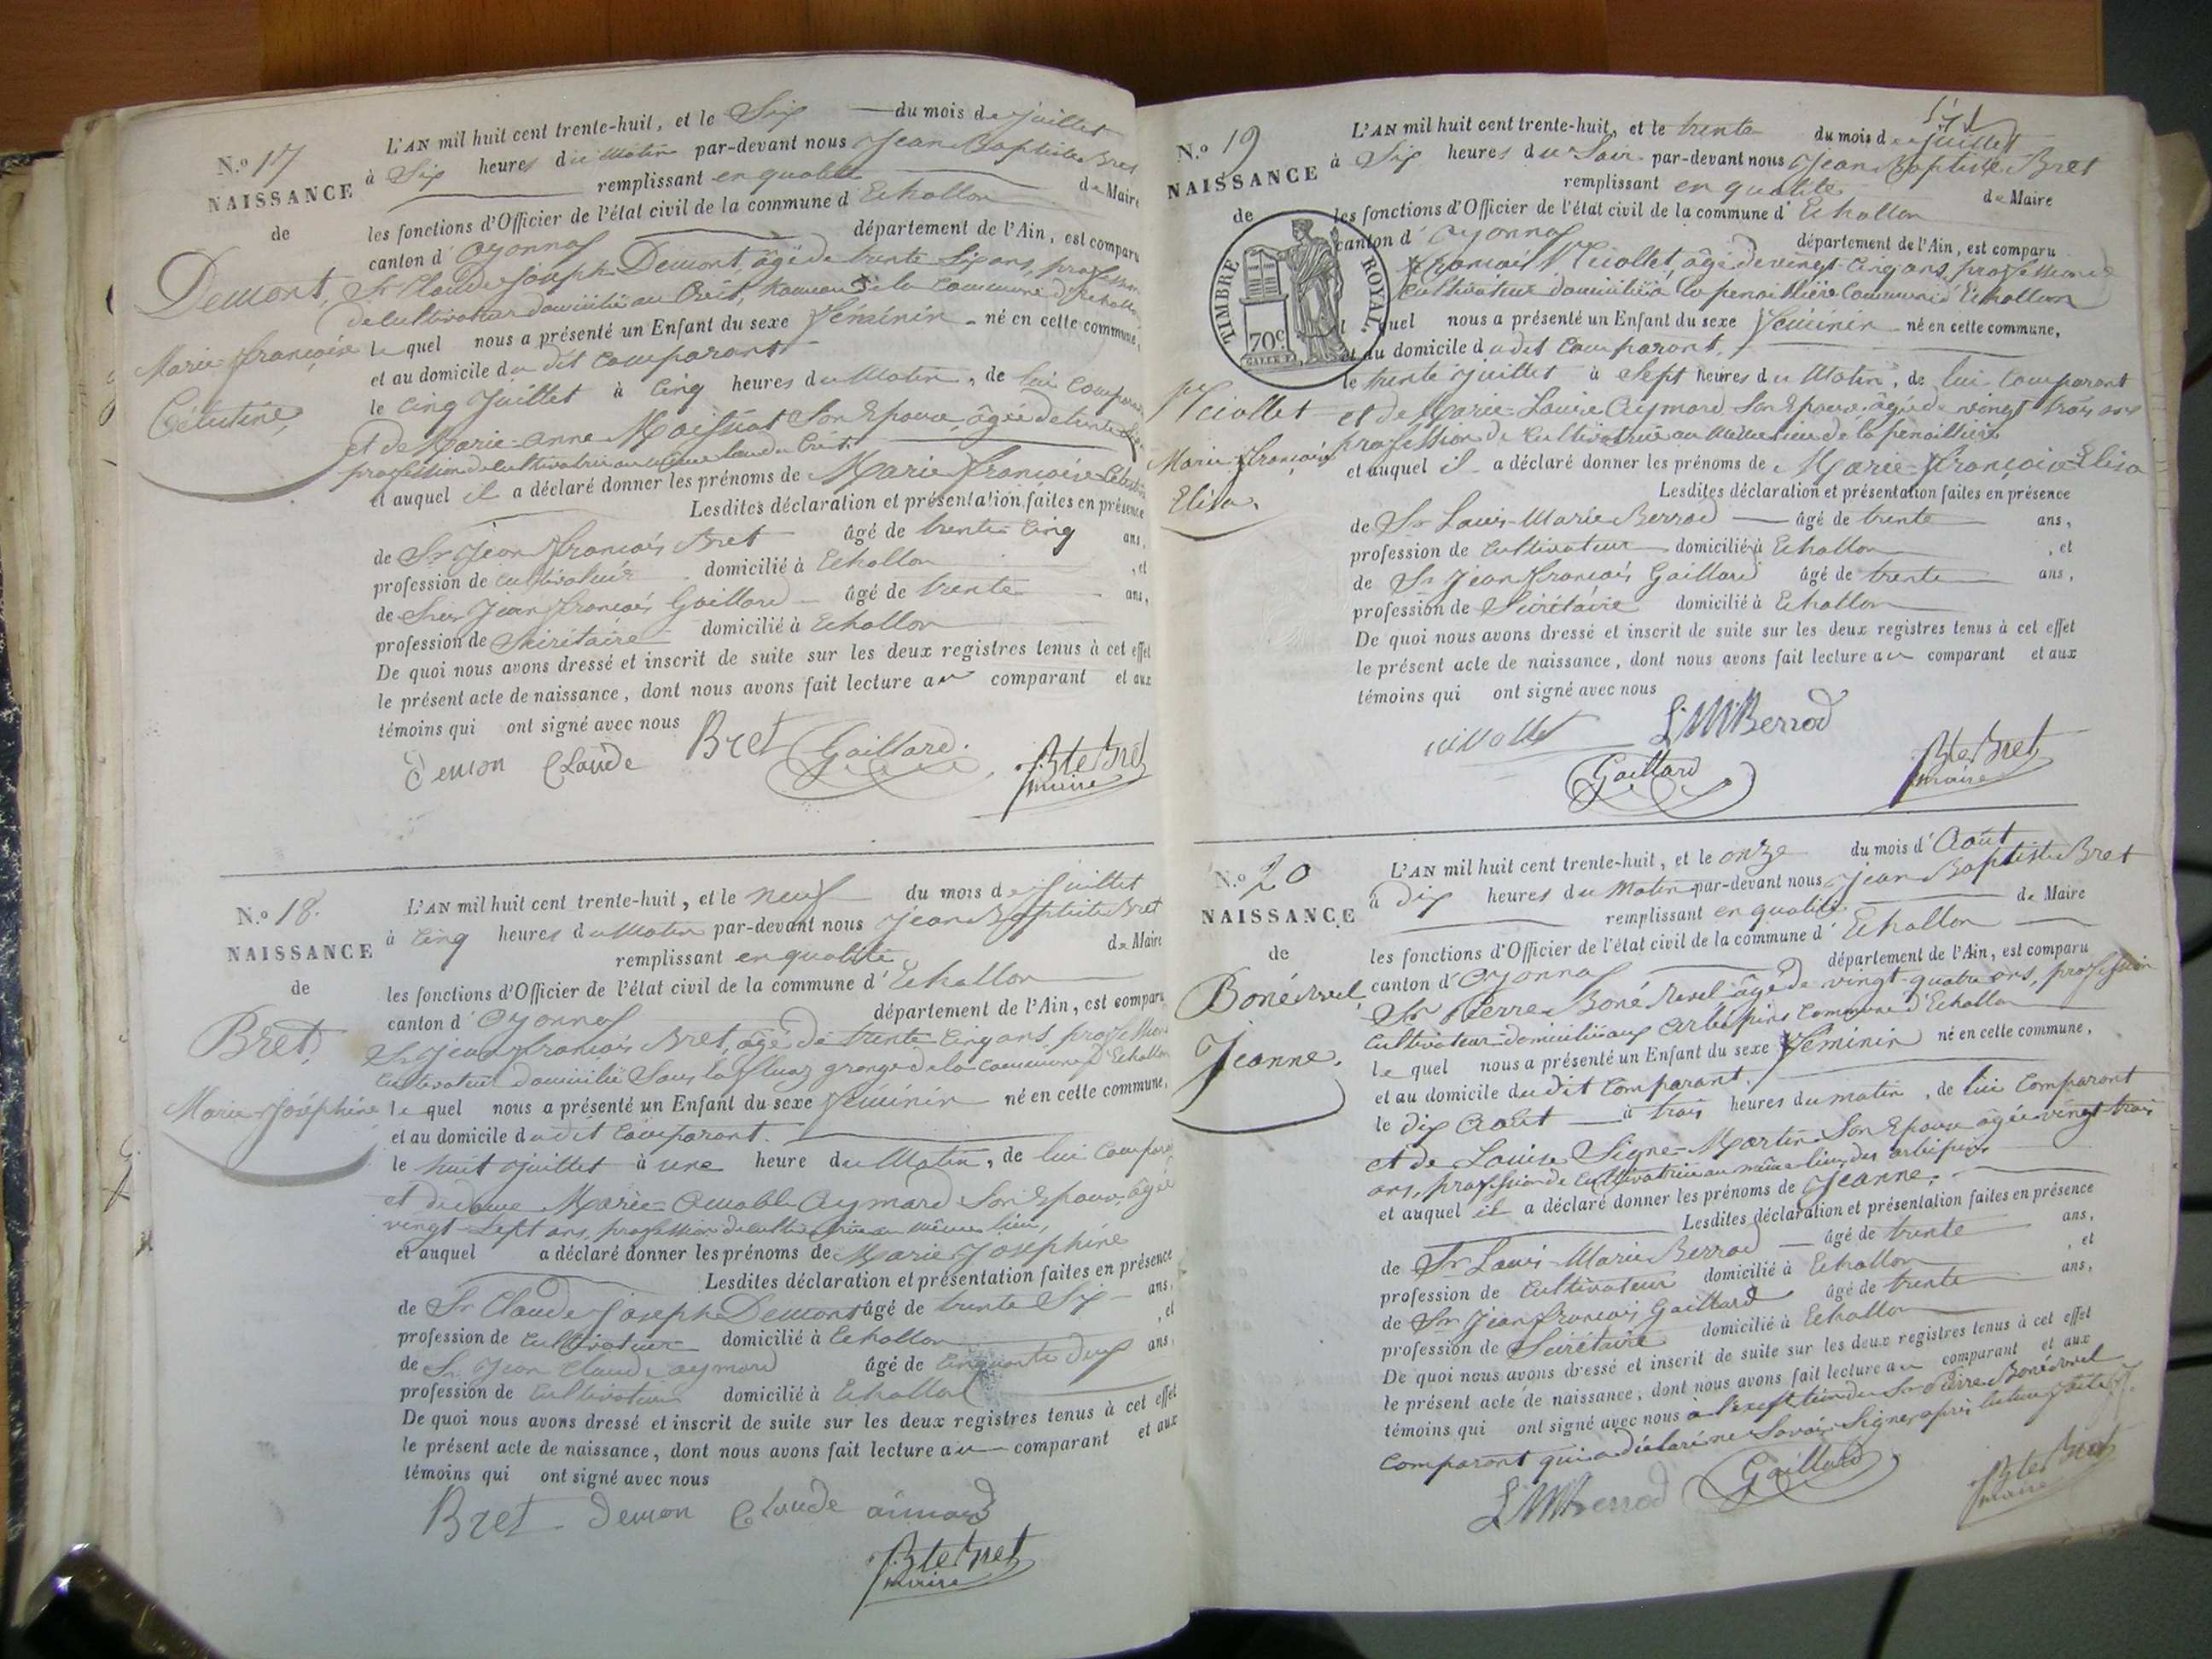 N.o 17
NAISSANCE
de
Demont,
Marie-françoise
Célestine,
L'AN mil huit cent trente-huit, et le Six du mois de juillet
à Six heures du Matin par-devant nous Jean Baptiste Bret
remplissant en qualité de Maire
les fonctions d'Officier de l'état civil de la commune d'Echallon
canton d'Oyonnax département de l'Ain, est comparu
Sr Claude Joseph Demont, âgé de trente Six ans, profession
de Cultivateur domicilié au Crêt, hameau de la Commune d'Echallon
le quel nous a présenté un Enfant du sexe féminin né en cette commune,
et au domicile du dit Comparant
le Cinq Juillet à Cinq heures du Matin, de lui Comparant
et de Marie-anne Maissiat Son Epouse, âgée de trente
profession de Cultivatrice au même lieu du Crêt.
et auquel il a déclaré donner les prénoms de Marie françoise Célestine
Lesdites déclaration et présentation faites en présence
de Sr Jean françois Bret âgé de trente Cinq ans,
profession de Cultivateur domicilié à Echallon , et
de Sieur Jean françois Gaillard âgé de trente ans,
profession de Sécrétaire domicilié à Echallon
De quoi nous avons dressé et inscrit de suite sur les deux registres tenus à cet effet
le présent acte de naissance, dont nous avons fait lecture au comparant et aux
témoins qui ont signé avec nous
Demon Claude Bret Gaillard. Bte Bret
maire
N.o 18.
NAISSANCE
de
Bret,
Marie Joséphine
L'AN mil huit cent trente-huit, et le neuf du mois de Juillet
à Cinq heures du Matin par-devant nous Jean Baptiste Bret
remplissant en qualité de Maire
les fonctions d'Officier de l'état civil de la commune d'Echallon
canton d'Oyonnax département de l'Ain, est comparu
Sr Jean françois Bret, âgé de trente Cinq ans, profession
Cultivateur domicilié Sous la grange de la Commune d'Echallon
le quel nous a présenté un Enfant du sexe féminin né en cette commune,
et au domicile du dit Comparant.
le huit Juillet à une heure du Matin, de lui Comparant
et de dame Marie-Amable Aymard Son Epouse, âgée
vingt-Sept ans, profession de Cultivatrice au même lieu,
et auquel a déclaré donner les prénoms de Marie Joséphine
Lesdites déclaration et présentation faites en présence
de Sr Claude Joseph Demont âgé de trente Six ans,
profession de Cultivateur domicilié à Echallon , et
de Sr Jean Claude aymard âgé de Cinquante deux ans,
profession de Cultivateur domicilié à Echallon
De quoi nous avons dressé et inscrit de suite sur les deux registres tenus à cet effet
le présent acte de naissance, dont nous avons fait lecture au comparant et aux
témoins qui ont signé avec nous
Bret Demon Claude aimard
Bte Bret
maire
N.o 19
NAISSANCE
de
TIMBRE ROYAL.
70c
Nicollet
Marie-françoise
Elisa.
L'AN mil huit cent trente-huit, et le trente du mois de juillet
à Six heures du Soir par-devant nous Jean Baptiste Bret
remplissant en qualité de Maire
les fonctions d'Officier de l'état civil de la commune d'Echallon
canton d'Oyonnax département de l'Ain, est comparu
françois Nicollet, âgé de vingt-Cinq ans, profession de
Cultivateur domicilié à la Commune d'Echallon
le quel nous a présenté un Enfant du sexe féminin né en cette commune,
et au domicile du dit Comparant,
le trente Juillet à Sept heures du Matin, de lui Comparant
et de Marie-Louise Aymard Son Epouse, âgée de vingt trois ans
profession de Cultivatrice au même lieu de la
et auquel il a déclaré donner les prénoms de Marie-françoise Elisa
Lesdites déclaration et présentation faites en présence
de Sr Louis-Marie Berrod âgé de trente ans,
profession de Cultivateur domicilié à Echallon , et
de Sr Jean françois Gaillard âgé de trente ans,
profession de Sécrétaire domicilié à Echallon
De quoi nous avons dressé et inscrit de suite sur les deux registres tenus à cet effet
le présent acte de naissance, dont nous avons fait lecture au comparant et aux
témoins qui ont signé avec nous
L M Berrod
Gaillard Bte Bret
maire
N.o 20
NAISSANCE
de
Jeanne.
L'AN mil huit cent trente-huit, et le onze du mois d'Août
à Dix heures du Matin par-devant nous Jean Baptiste Bret
remplissant en qualité de Maire
les fonctions d'Officier de l'état civil de la commune d'Echallon
canton d'Oyonnax département de l'Ain, est comparu
Sr Pierre âgé de vingt-quatre ans, profession
Cultivateur domicilié aux Commune d'Echallon
le quel nous a présenté un Enfant du sexe féminin né en cette commune,
et au domicile du dit Comparant.
le dix Août à trois heures du matin, de lui Comparant
et de Louise Signe-Martin Son Epouse âgée vingt trois
ans, profession de Cultivatrice au même lieu des
et auquel il a déclaré donner les prénoms de Jeanne.
Lesdites déclaration et présentation faites en présence
de Sr Louis-Marie Berrod âgé de trente ans,
profession de Cultivateur domicilié à Echallon , et
de Sr Jean françois Gaillard âgé de trente ans,
profession de Sécrétaire domicilié à Echallon
De quoi nous avons dressé et inscrit de suite sur les deux registres tenus à cet effet
le présent acte de naissance, dont nous avons fait lecture au comparant et aux
témoins qui ont signé avec nous à l'exception du Sr Pierre
Comparant qui a déclaré ne Savoir Signer après lecture faite
L M Berrod Gaillard Bte Bret
maire